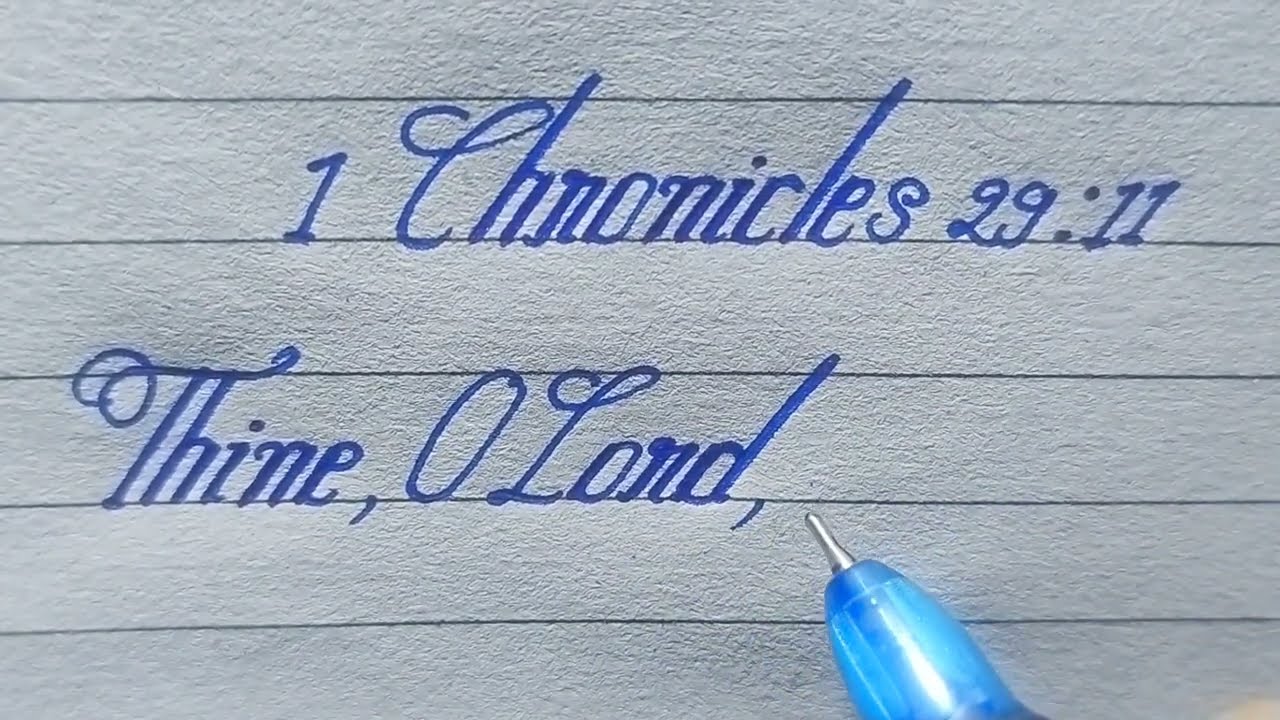 1 Chronicles 29:11
Thine, O Lord,